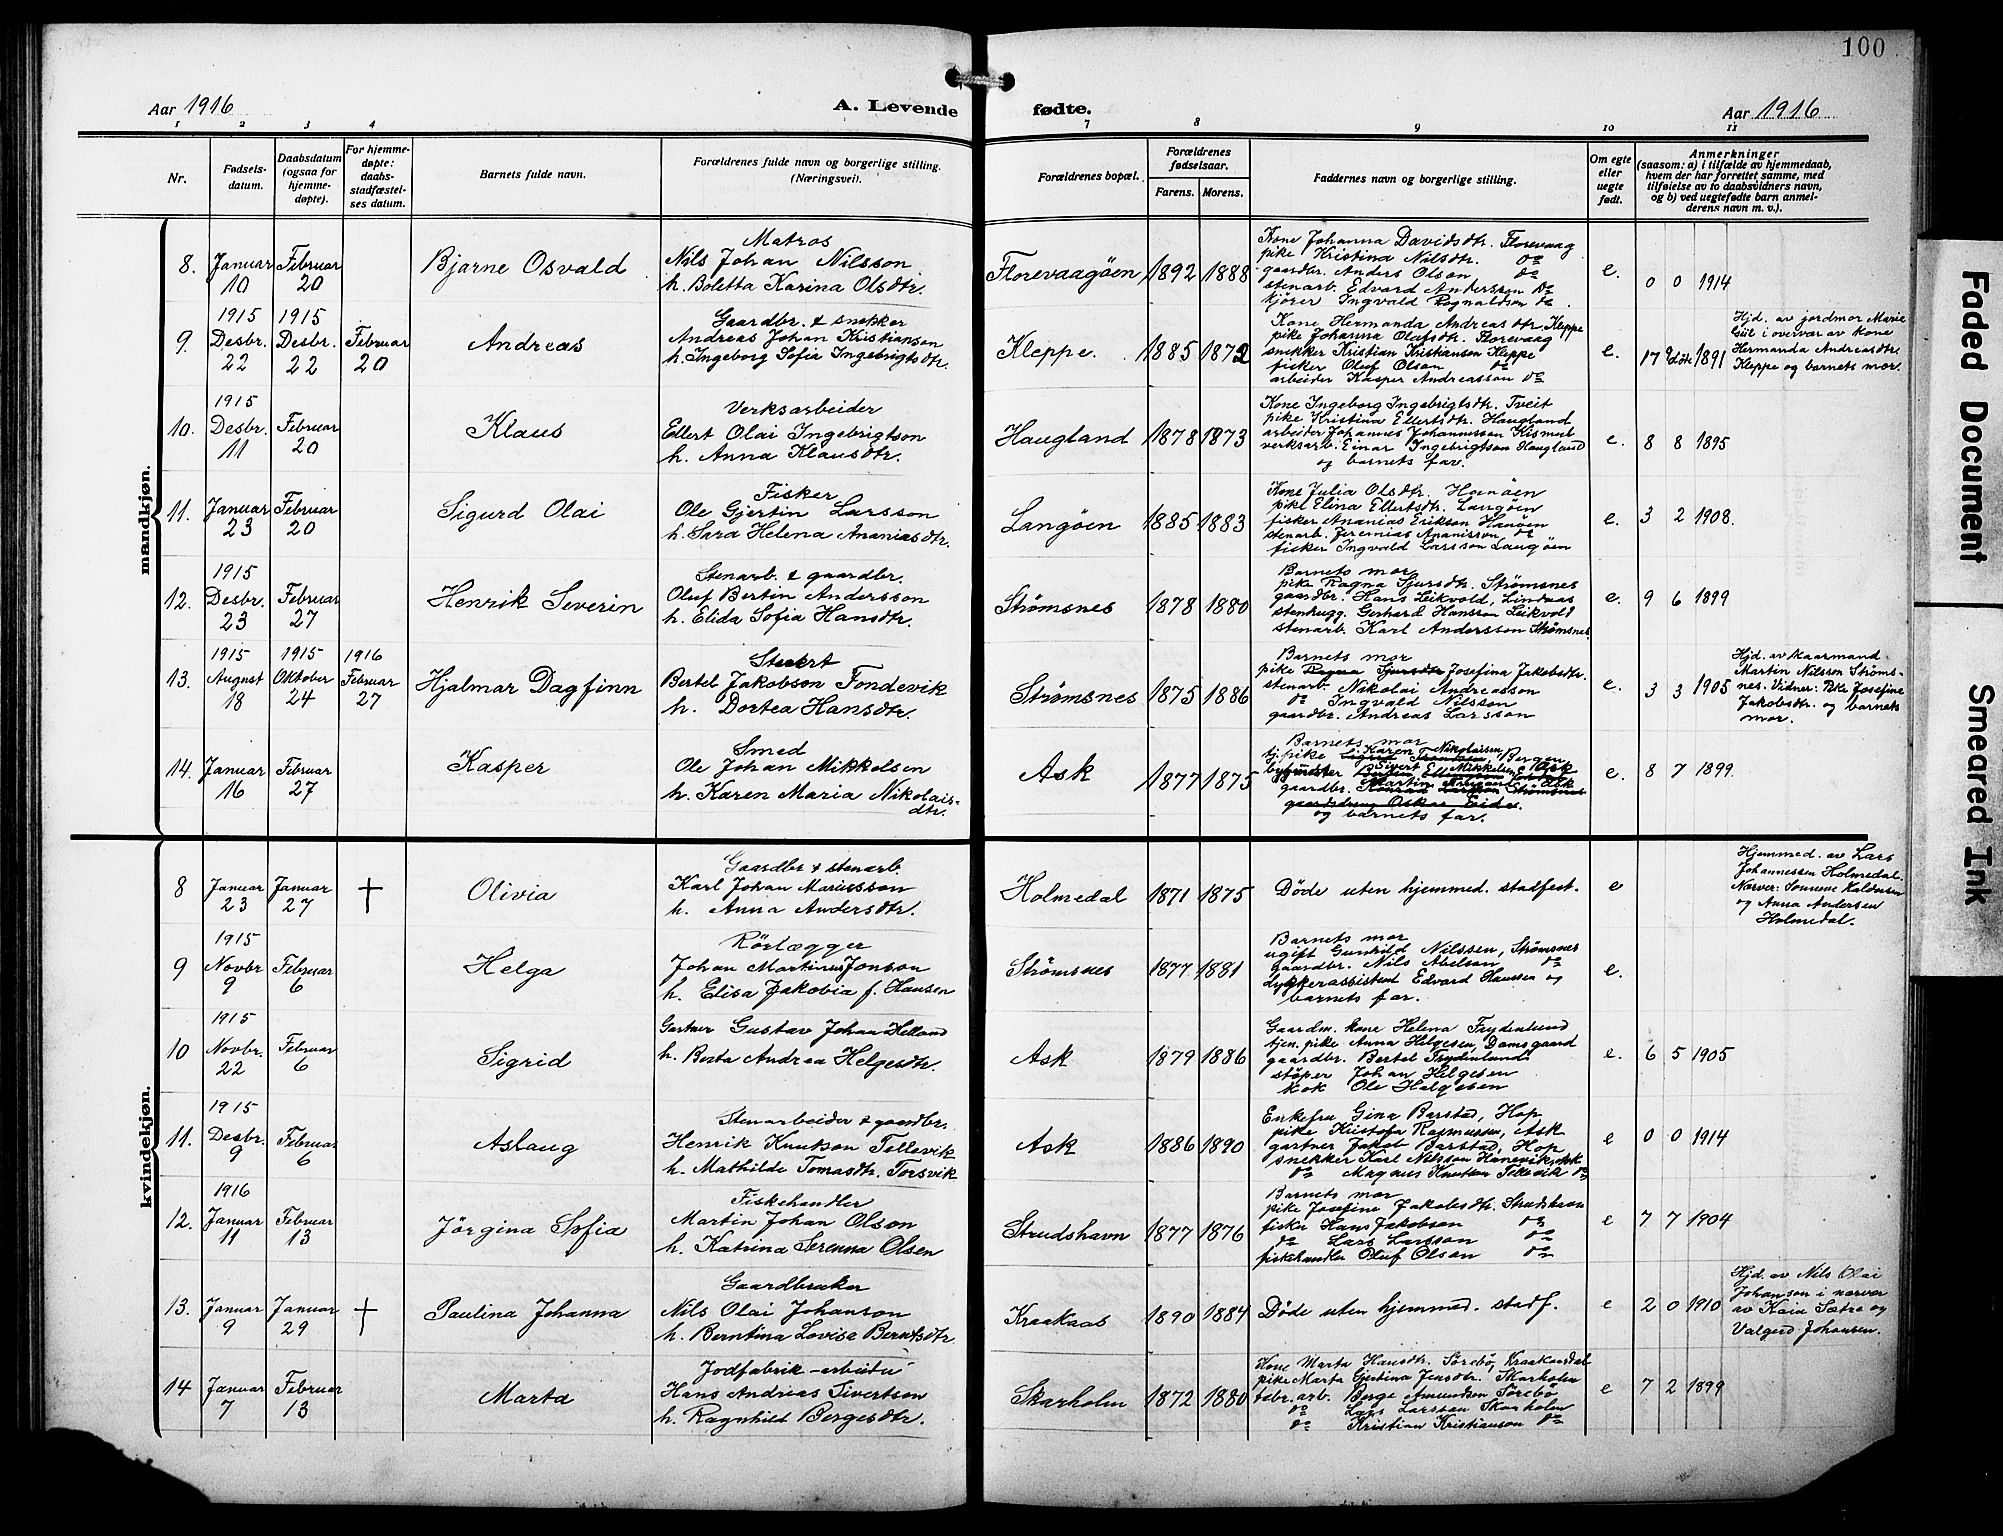 100
Aar 1916
A. Levende
fødte.
Aar 1916
1 2 3 4 7 8 9 10 11
Nr.
Fødsels-
datum.
Daabsdatum
(ogsaa for
hjemme-
døpte).
For hjemme-
døpte:
daabs-
stadfæstel-
ses datum.
Barnets fulde navn.
Forældrenes fulde navn og borgerlige stilling.
(Næringsvei).
Forældrenes bopæl.
Forældrenes
fødselsaar.
Farens. Morens.
Faddernes navn og borgerlige stilling.
Om egte
eller
uegte
født.
Anmerkninger
(saasom: a) i tilfælde av hjemmedaab,
hvem der har forrettet samme, med
tilføielse av to daabsvidners navn,
og b) ved uegtefødte barn anmel-
derens navn m. v.).
mandkjøn.
8. Januar 10
Februar 20
Bjarne Osvald
Matros
Nils Johan Nilsson
h. Boletta Karina Olsdtr.
Florevaagøen 1892 1888
Kone Johanna Davidsdtr. Florevaag
pike Kristina Nilsdtr. do
gaardbr. Anders Olson do
stenarb. Edvard Andersson do
kjører Ingvald Ragnaldsen do
e. 0 0 1914
9. 1915 Desbr. 22
1915 Desbr. 22
Februar 20
Andreas
Gaardbr. & snekker
Andreas Johan Kristianson
h. Ingeborg Sofia Ingebrigtsdtr.
Kleppe. 1885 1872
Kone Hermanda Andreasdtr. Kleppe
pike Johanna Olafsdtr. Florevaag
snekker Kristian Kristianson Kleppe
fisker Oluf Olson do
arbeider Kasper Andreasson do
e. 17 1891
Hjd. av jordmor Marie
i overvær av kone
Hermanda Andreasdtr.
Kleppe og barnets mor.
10. 1915 Desbr. 11
Februar 20
Klaus
Verksarbeider
Ellert Olai Ingebrigtson
h. Anna Klausdtr.
Haugland 1878 1873
Kone Ingeborg Ingebrigtsdtr. Tveit
pike Kristina Ellertsdtr. Haugland
arbeider Johannes Johannesson
verksarb. Einar Ingebrigtson Haugland
og barnets far.
e. 8 8 1895
11. Januar 23
Februar 20
Sigurd Olai
Fisker
Ole Gjertin Larsson
h. Sara Helena Ananiasdtr.
Langøen 1885 1883
Kone Julia Olsdtr. Hanøen
pike Elina Ellertsdtr. Langøen
fisker Ananias Erikson Hanøen
stenarb. Jeremias Ananisson do
fisker Ingvald Larsson Langøen
e. 3 2 1908.
12. 1915 Desbr. 23
Februar 27
Henrik Severin
Stenarb. & gaardbr.
Oluf Bertin Andersson
h. Elida Sofia Hansdtr.
Strømsnes 1878 1880
Barnets mor
pike Ragna Sjursdtr. Strømsnes
gaardbr. Hans Leikvold, Lindaas
stenhugg. Gerhard Hansson Leikvold
stenarb. Karl Andersson Strømsnes.
e. 9 6 1899
13. 1915 August 18
1915 Oktober 24
1916 Februar 27
Hjalmar Dagfinn
Stuert
Bertel Jakobson Fondevik
h. Dortea Hansdtr.
Strømsnes 1875 1886
Barnets mor
pike Ragna Sjursdtr Josefina Jakobsdtr.
stenarb. Nikolai Andreasson
do Ingvald Nilsson
gaardbr. Andreas Larsson
e. 3 3 1905
Hjd. av kaarmand
Martin Nilsson Strøms-
nes. Vidner: Pike Josefine
Jakobsdtr. og barnets
mor.
14. Januar 16
Februar 27
Kasper
Smed
Ole Johan Mikkelsen
h. Karen Maria Nikolais-
dtr.
Ask 1877 1875
Barnets mor
tj. pike Karen Nikolaisen, Bergen
bygmester Sivert Mikkelsen Ask
gaardbr. Martin Ask
gaardsdreng Oskar Eide.
og barnets far.
e. 8 7 1899.
kvindekjøn.
8 Januar 23
Januar 27
†
Olivia
Gaardbr & stenarb.
Karl Johan Mariusson
h. Anna Andersdtr.
Holmedal 1871 1875
Døde uten hjemmed. stadfest.
e
Hjemmed. av Lars
Johannessen Holmedal.
Nærver:
og Anna Andersen
Holmedal.
9 1915 Novbr 9
Februar 6
Helga
Rørlægger
Johan Martinus Jonson
h. Elisa Jakobia f. Hansen
Strømsnes 1877 1881
Barnets mor
ugift Gunhild Nilssen, Strømsnes
gaardbr. Nils Abelson do
dykkerassistent Edvard Hanssen og
barnets far.
e.
10 1915 Novbr. 22
Februar 6
Sigrid
Gartner Gustav Johan Helland
h. Berta Andrea Helgesdtr.
Ask 1879 1886
Gaardm. kone Helena Frydenlund
tjen. pike Anna Helgesen, Damsgaard
gaardbr. Bertel Frydenlund
støper Johan Helgesen
kok Ole Helgesen
e. 6 5 1905
11. 1915 Desbr. 9
Februar 6
Aslaug
Stenarbeider & gaardbr.
Henrik Knutson Tellevik
h. Mathilde Tomasdtr. Torsvik
Ask 1886 1890
Enkefru Gina Barstad, Hop
pike Kristofa Rasmussen, Ask
gartner Jakob Barstad, Hop
snekker Karl Nilsson Hanevik, Ask
do Magnus Knutson Tellevik do
e 0 0 1914
12. 1916 Januar 11
Februar 13
Jørgina Sofia
Fiskehandler
Martin Johan Olson
h. Katrina Serenna Olsen
Strudshavn 1877 1876
Barnets mor
pike Josefine Jakobsdtr. Strudshavn
fisker Hans Jakobson do
do Lars Larsson do
fiskehandler Oluf Olson do
e 7 7 1904
13. Januar 9
Januar 29
†
Paulina Johanna
Gaardbruker
Nils Olai Johanson
h. Berntina Lovisa Berntsdtr.
Kraakaas 1890 1884
Døde uten hjemmed. stadf.
e 2 0 1910
Hjd. av Nils Olai
Johanson i nærver
av Kaia Sætre og
Valgerd Johansen.
14 Januar 7
Februar 13
Marta
Jodfabrik-arbeider
Hans Andreas Sivertson
h. Ragnhild Bergesdtr.
Skarholm 1872 1880
Kone Marta Hansdtr. Sørebø, Kraakaasdal
pike Marta Gjertina Jensdtr. Skarholm
fabr. arb. Berge Amundsen Sørebø
do Lars Larsson Skarholm
do Kristian Kristianson do
e 7 2 1899
Faded Document
Smeared Ink